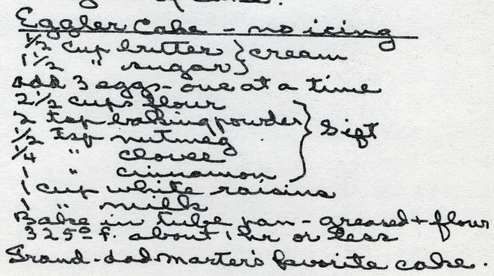 Eggler Cake - no icing
1/2 cup butter } cream
1 1/2 " sugar
add 3 eggs - one at a time
2 1/2 cups flour
2 tsp baking powder } Sift
1/2 tsp nutmeg
1/4 " cloves
1 " cinnamon
1 cup white raisins
1 " milk
Bake in tube pan - greased + flour
325° f. about 1 hr or less
Grand-dad Marter's favorite cake.